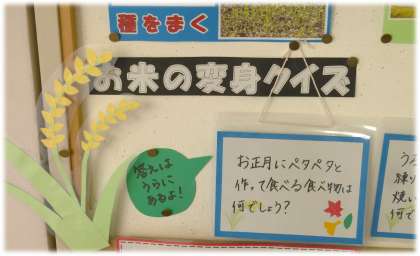 種をまく
お米の変身クイズ
答えは
うらに
あるよ!
お正月にペタペタと
作って食べる食べ物は
何でしょう?
練り
焼い
何で